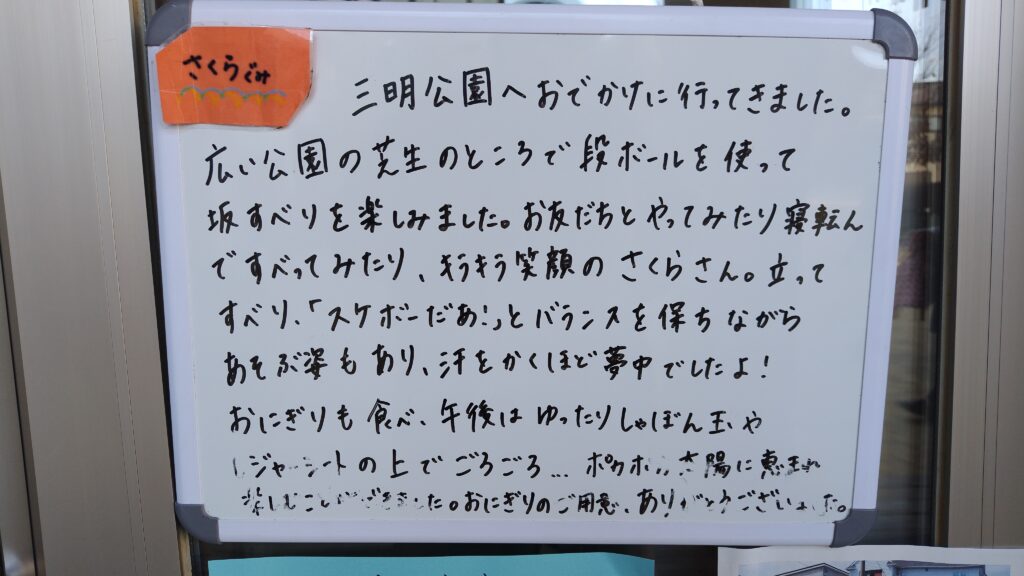 さくらぐみ
三明公園へおでかけに行ってきました。
広い公園の芝生のところで段ボールを使って
坂すべりを楽しみました。お友だちとやってみたり寝転ん
ですべってみたり、キラキラ笑顔のさくらさん。立って
すべり、「スケボーだあ!」とバランスを保ちながら
あそぶ姿もあり、汗をかくほど夢中でしたよ!
おにぎりも食べ、午後はゆったりしゃぼん玉や
レジャーシートの上でごろごろ… ポカポカ太陽に恵まれ
楽しむことができました。おにぎりのご用意、ありがとうございました。